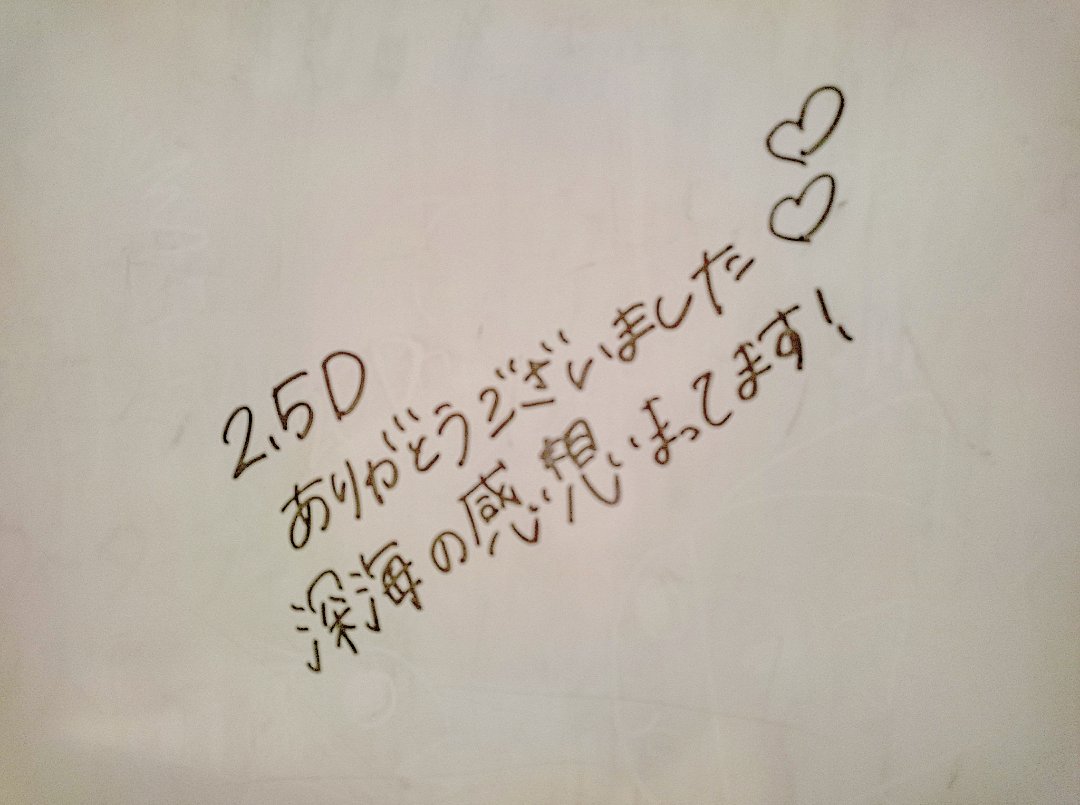 2.5D
ありがとうございました♡♡
深海の感想まってます!